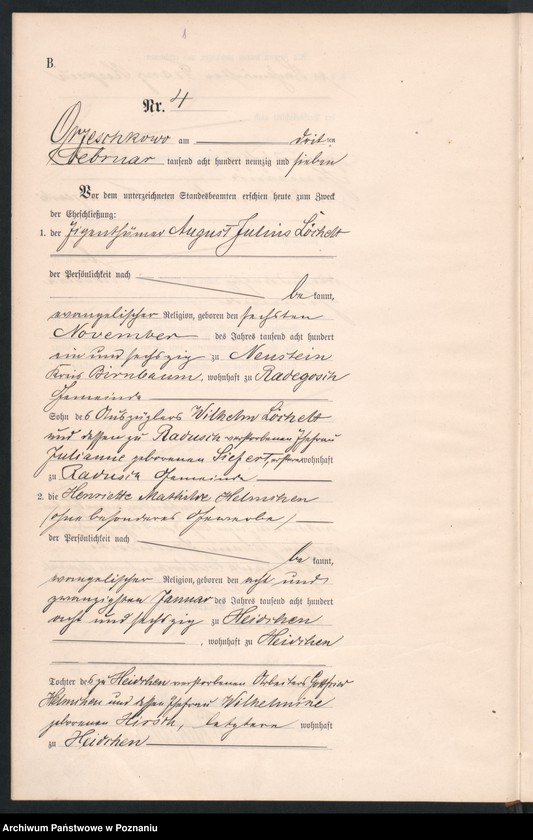 B.
Nr. 4
Orzeschkowo am dritten
Februar tausend acht hundert neunzig und sieben
Vor dem unterzeichneten Standesbeamten erschien heute zum Zweck
der Eheschließung:
1. der Eigenthümer August Julius Löchelt
der Persönlichkeit nach
be kannt,
evangelischer Religion, geboren den sechsten
November des Jahres tausend acht hundert
ein und sechszig zu Neustein
Kreis Birnbaum, wohnhaft zu Radegosch
Gemeinde
Sohn des Auszüglers Wilhelm Löchelt
und dessen zu Radusch verstorbenen Ehefrau
Julianne geborenen Siefert, ersterer wohnhaft
zu Radusch Gemeinde
2. die Henriette Mathilde Helmchen
/ohne besonderes Gewerbe/
der Persönlichkeit nach
be kannt,
evangelischer Religion, geboren den acht und
zwanzigsten Januar des Jahres tausend acht hundert
acht und sechszig zu Heidchen
, wohnhaft zu Heidchen
Tochter des zu Heidchen verstorbenen Arbeiters Gottfried
Helmchen und dessen Ehefrau Wilhelmine
geborenen Hirsch, letztere wohnhaft
zu Heidchen
Archiwum Państwowe w Poznaniu